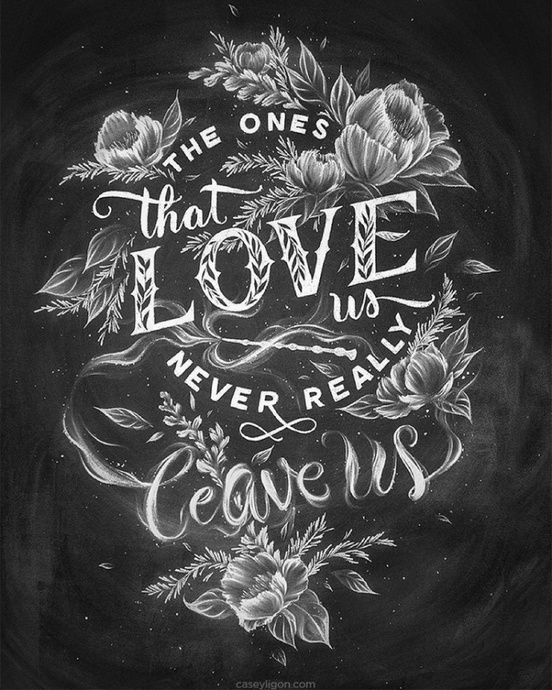 THE ONES
that
LOVE
us
NEVER REALLY
leave us
caseyligon.com